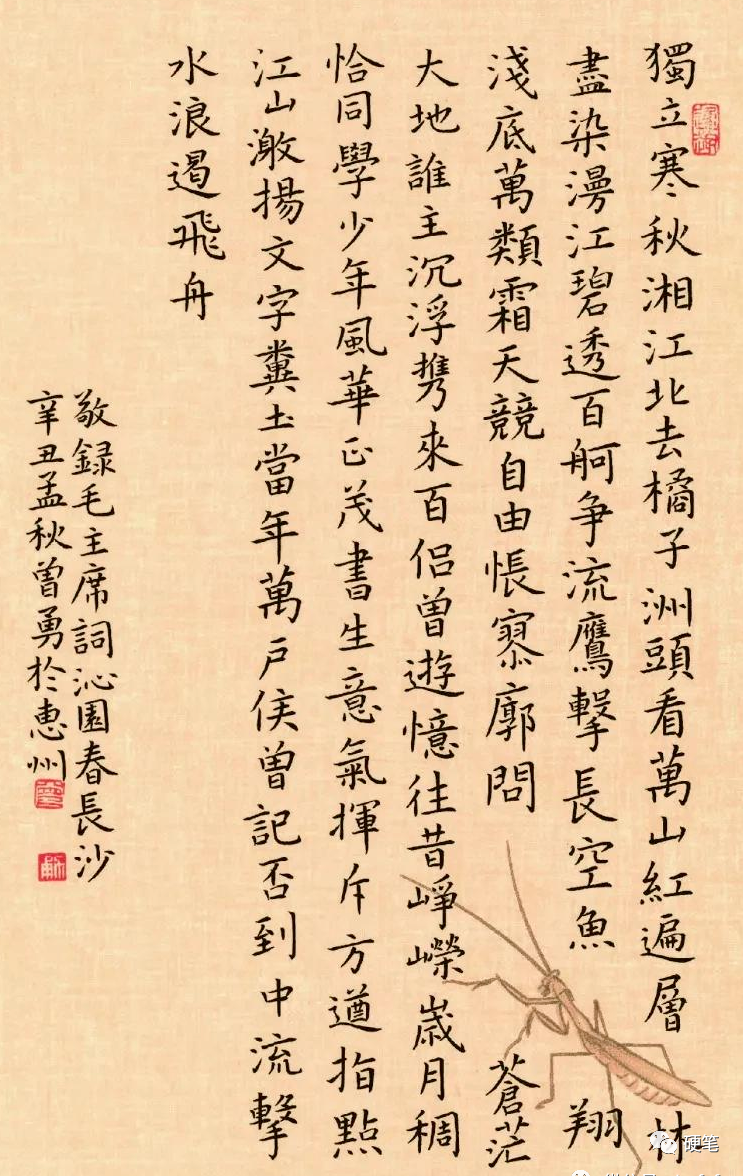 獨立寒秋湘江北去橘子洲頭看萬山紅遍層林
盡染漫江碧透百舸争流鷹擊長空魚翔
淺底萬類霜天競自由悵寥廓問蒼茫
大地誰主沉浮携來百侣曾遊憶往昔崢嶸歲月稠
恰同學少年風華正茂書生意氣揮斥方遒指點
江山激揚文字糞土當年萬戶侯曾記否到中流擊
水浪遏飛舟
敬録毛主席詞沁園春長沙
辛丑孟秋曾勇於惠州
硬笔